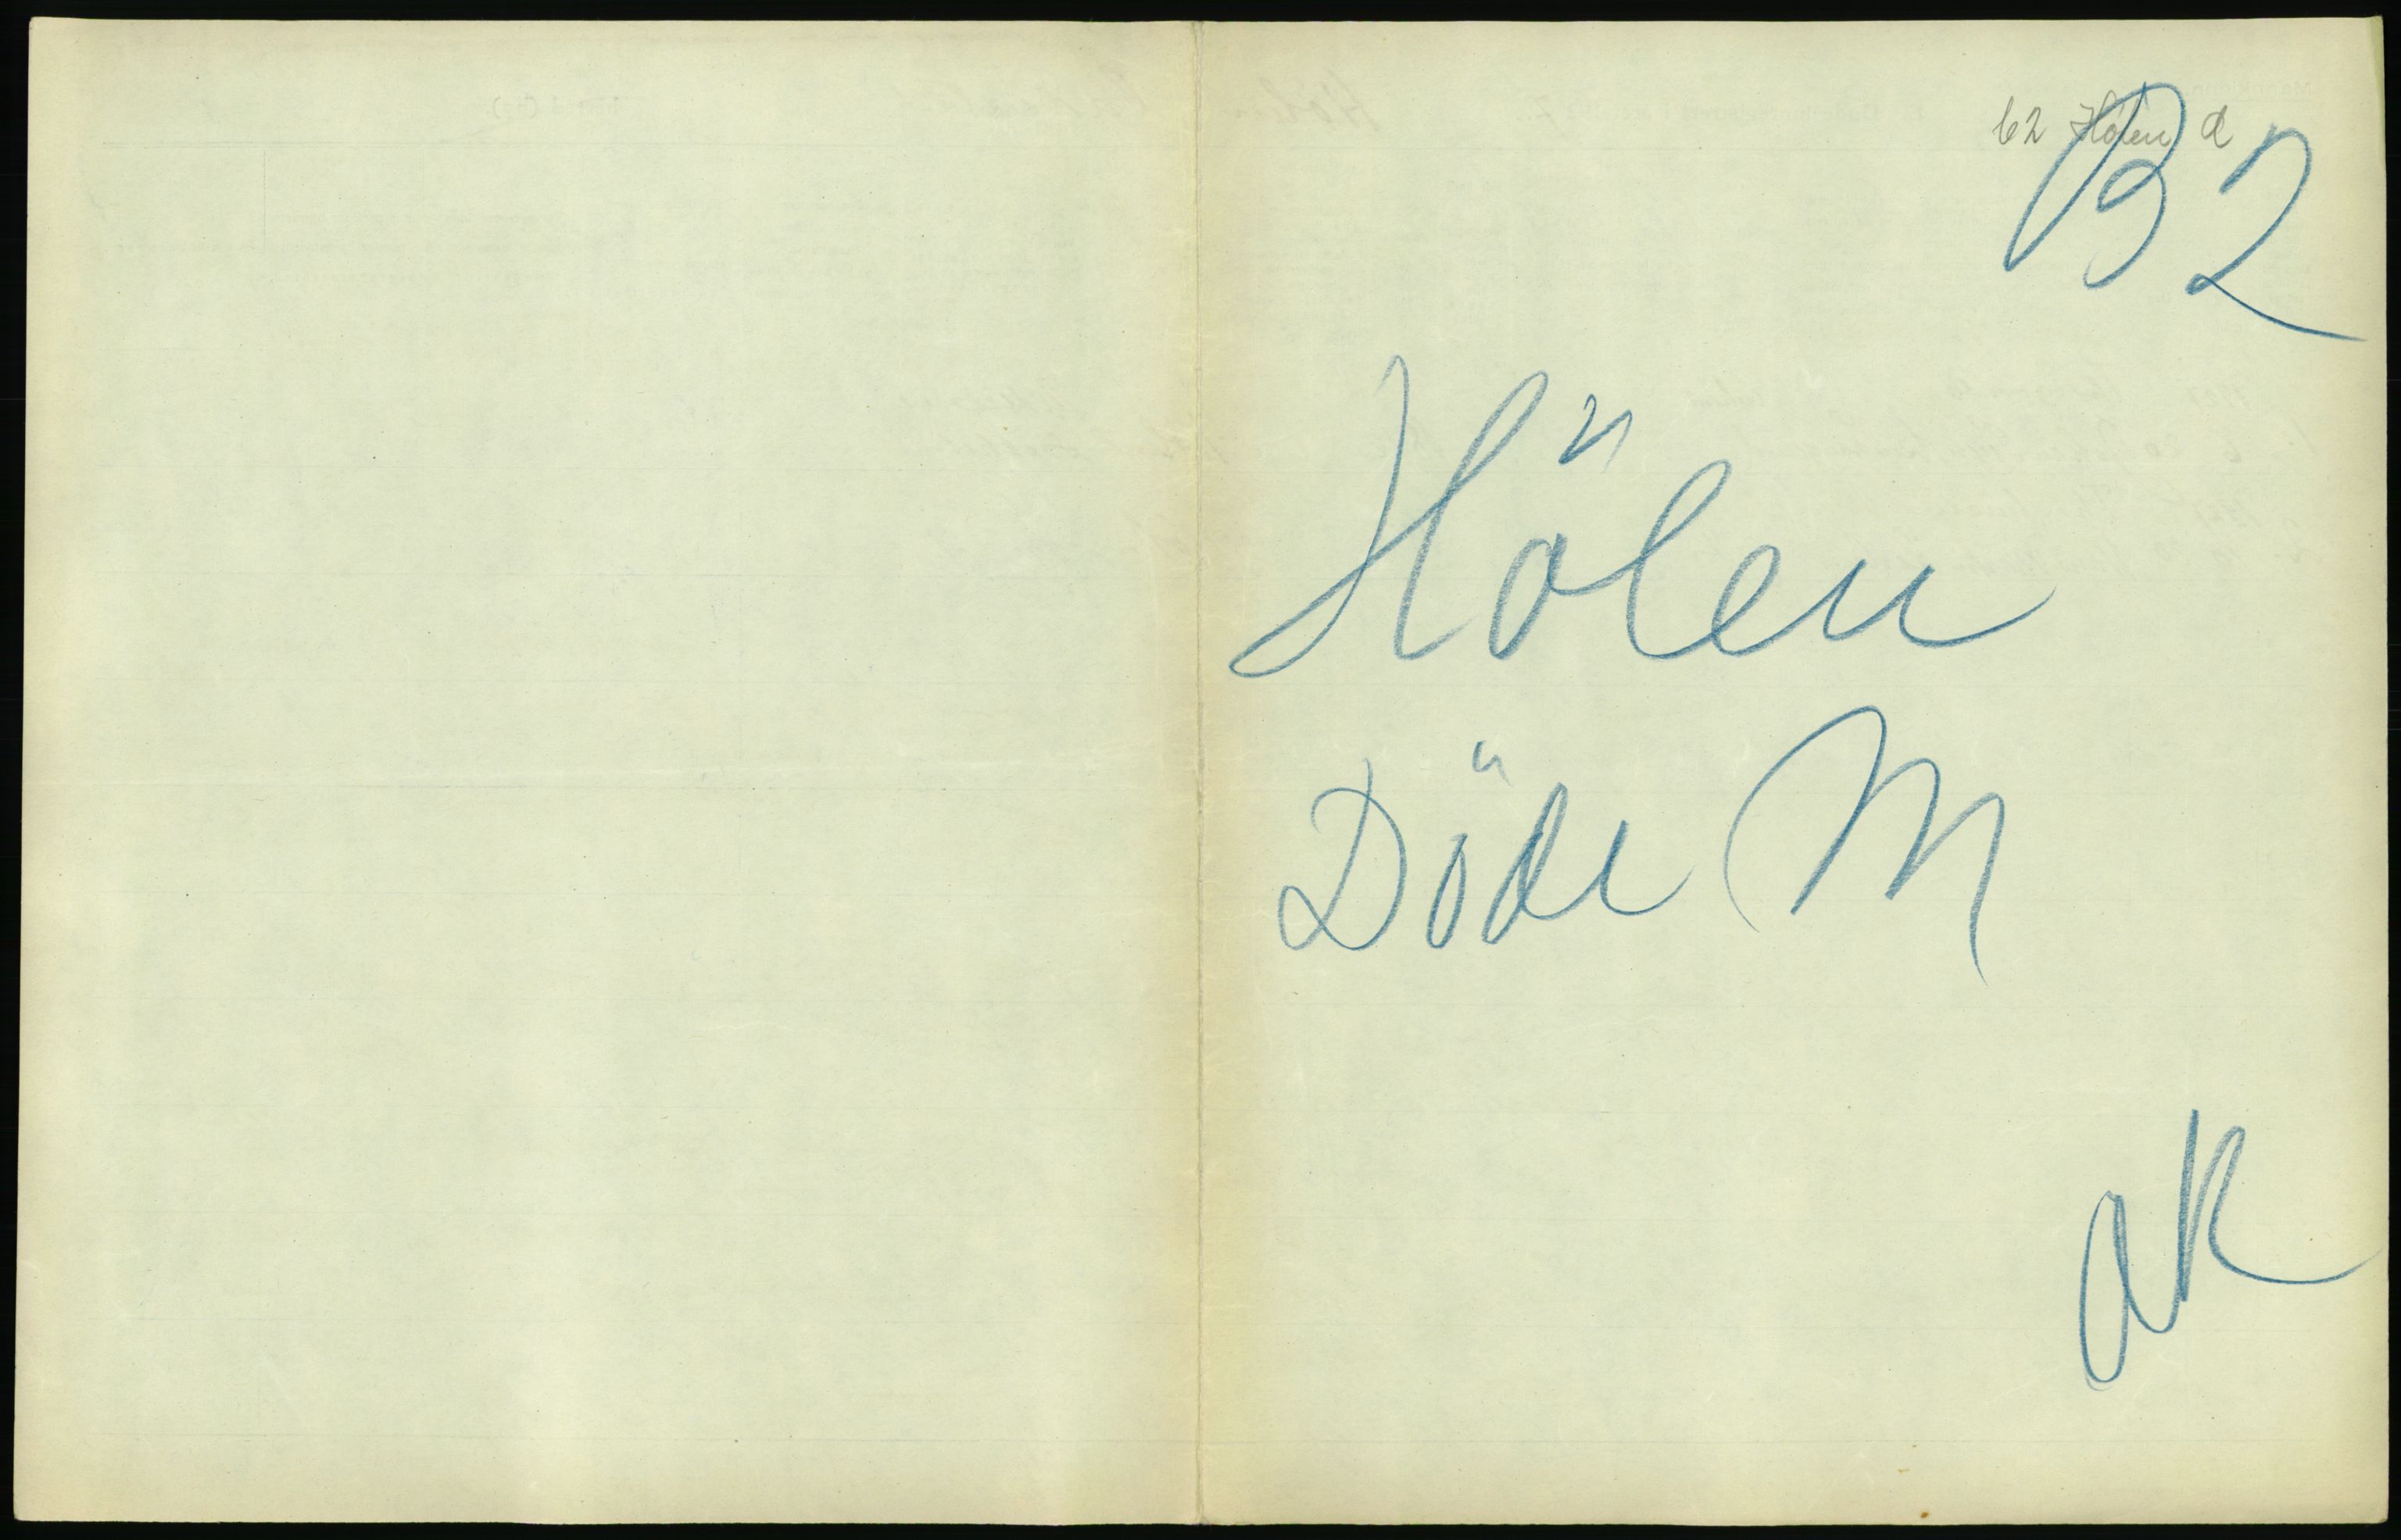 62 Hölen d
B2
Hölen
Döde M
OK